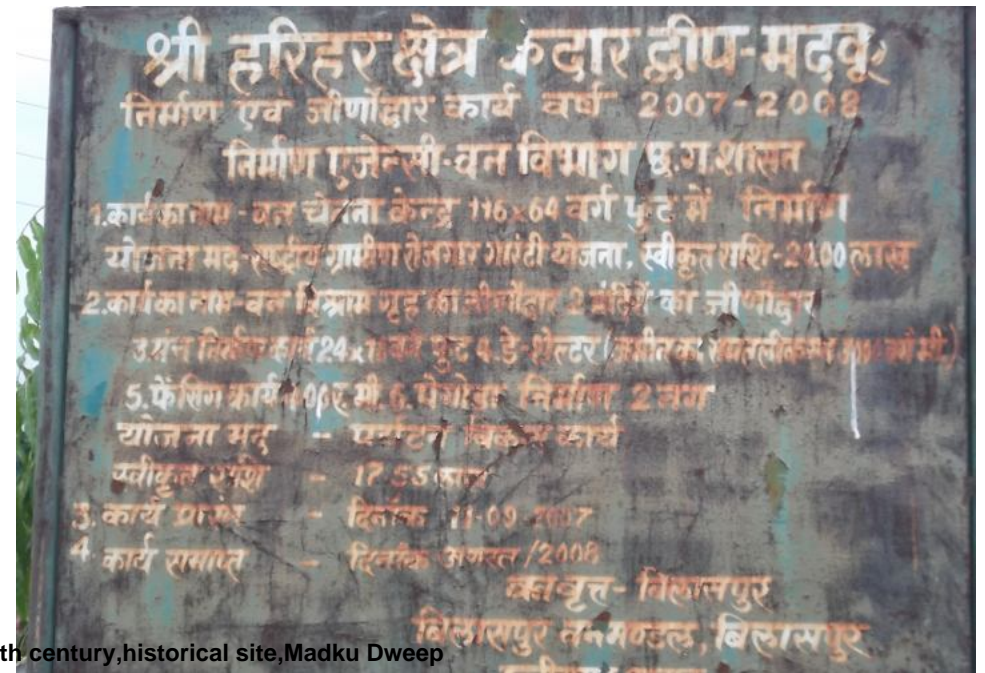 श्री हरिहर क्षेत्र केदार द्वीप-मदकू
निर्माण एवं जीर्णोद्धार कार्य वर्ष 2007-2008
निर्माण एजेन्सी-वन विभाग छ.ग.शासन
1.कार्य का नाम-वन चेतना केन्द्र 116x64 वर्ग फुट में निर्माण
योजना मद-राष्ट्रीय ग्रामीण रोजगार गारंटी योजना, स्वीकृत राशि- लाख
2.कार्य का नाम-वन विश्राम गृह का जीर्णोद्धार 2 मंदिरों का जीर्णोद्धार
फुट 4.डे-शेल्टर
5.फेंसिंग कार्य र.मी.6.पेगोडा निर्माण 2 नग
योजना मद - पर्यटन विकास कार्य
स्वीकृत राशि - 17.55 लाख
3. कार्य प्रारंभ - दिनांक 11-09-2007
4. कार्य समाप्त - दिनांक अगस्त/2008
वनवृत्त- बिलासपुर
बिलासपुर वनमण्डल, बिलासपुर
th century,historical site,Madku Dweep